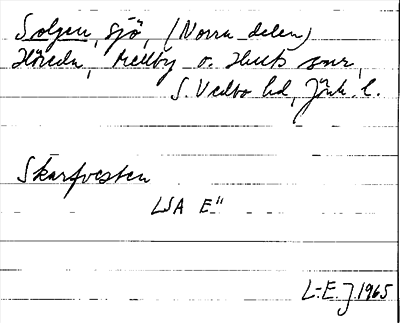 Solgen, sjö, (Norra delen)
Höreda, Mellby o. Hults snr,
S. Vedbo hd, Jönk. l.
Skarfvesten
LSA E"
L-E. J 1965